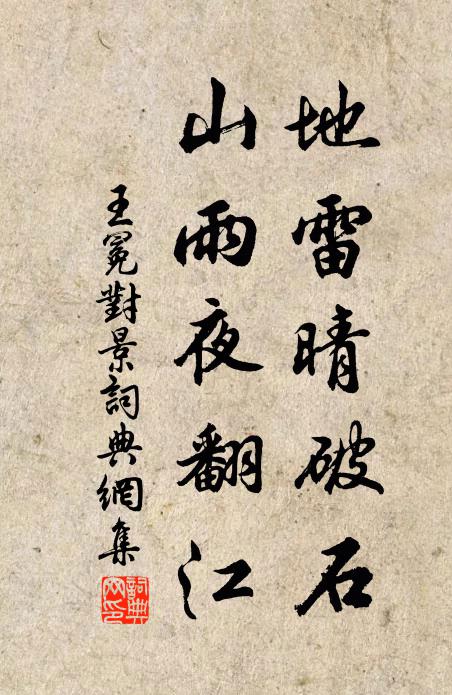 地雷晴破石
山雨夜翻江
王冕對景詞典網集
詞典
網印